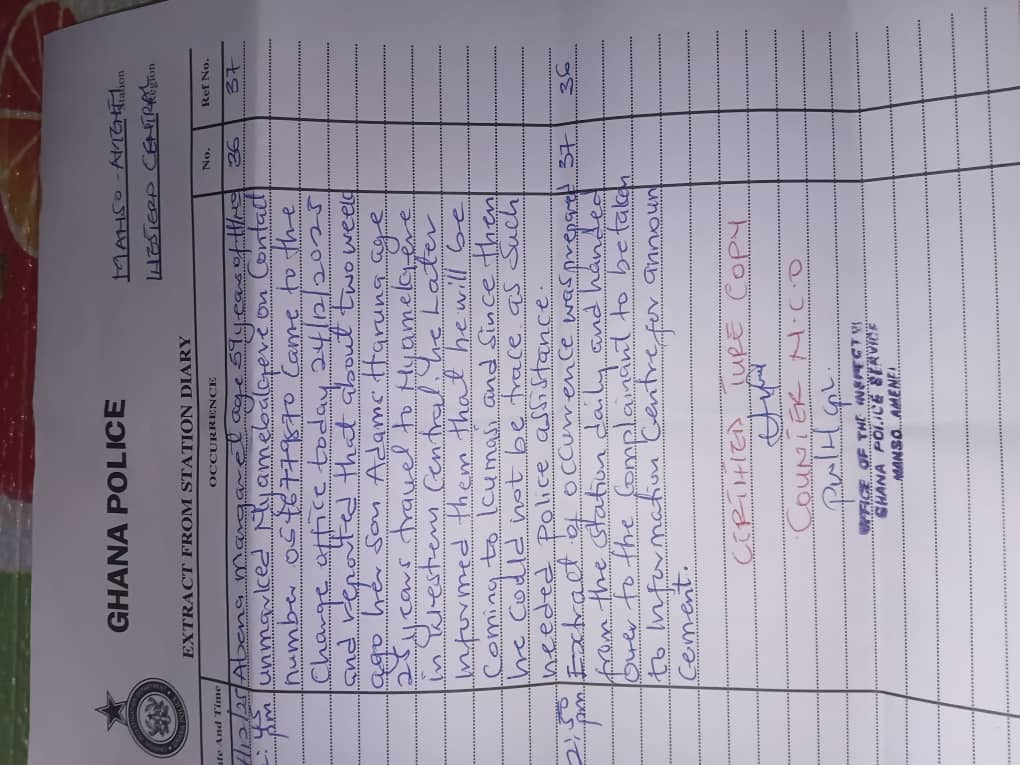 GHANA POLICE
MANSO - AMENFI Station
WESTERN CENTRAL Region
EXTRACT FROM STATION DIARY
te And Time OCCURRENCE No. Ref No.
/12/25 Abena Margaret age 59 years of H/No 36 37
:45 pm unmarked Nyamebalegere on Contact
number 0546779870 Came to the
Charge office today 24/12/2025
and reported that about two week
ago her son Adams Haruna age
25 years travel to Nyamelegere
in Western Central. He Later
Informed them that he will be
Coming to Kumasi and since then
he Could not be trace as Such
needed police assistance.
2:50 pm Extract of occurrence was prepared 37 36
from the station daily and handed
over to the Complainant to be taken
to Information Centre for announ
Cement.
CERTIFIED TURE COPY
COUNTER N.C.O
OFFICE OF THE INSPECT
GHANA POLICE SERVICE
MANSO AMENFI